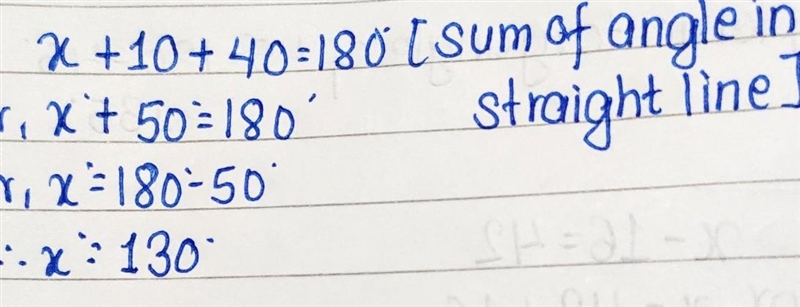 x + 10 + 40 = 180° [sum of angle in
straight line]
r, x° + 50° = 180°
r, x° = 180° - 50°
∴ x° = 130°
x - 16 = 42